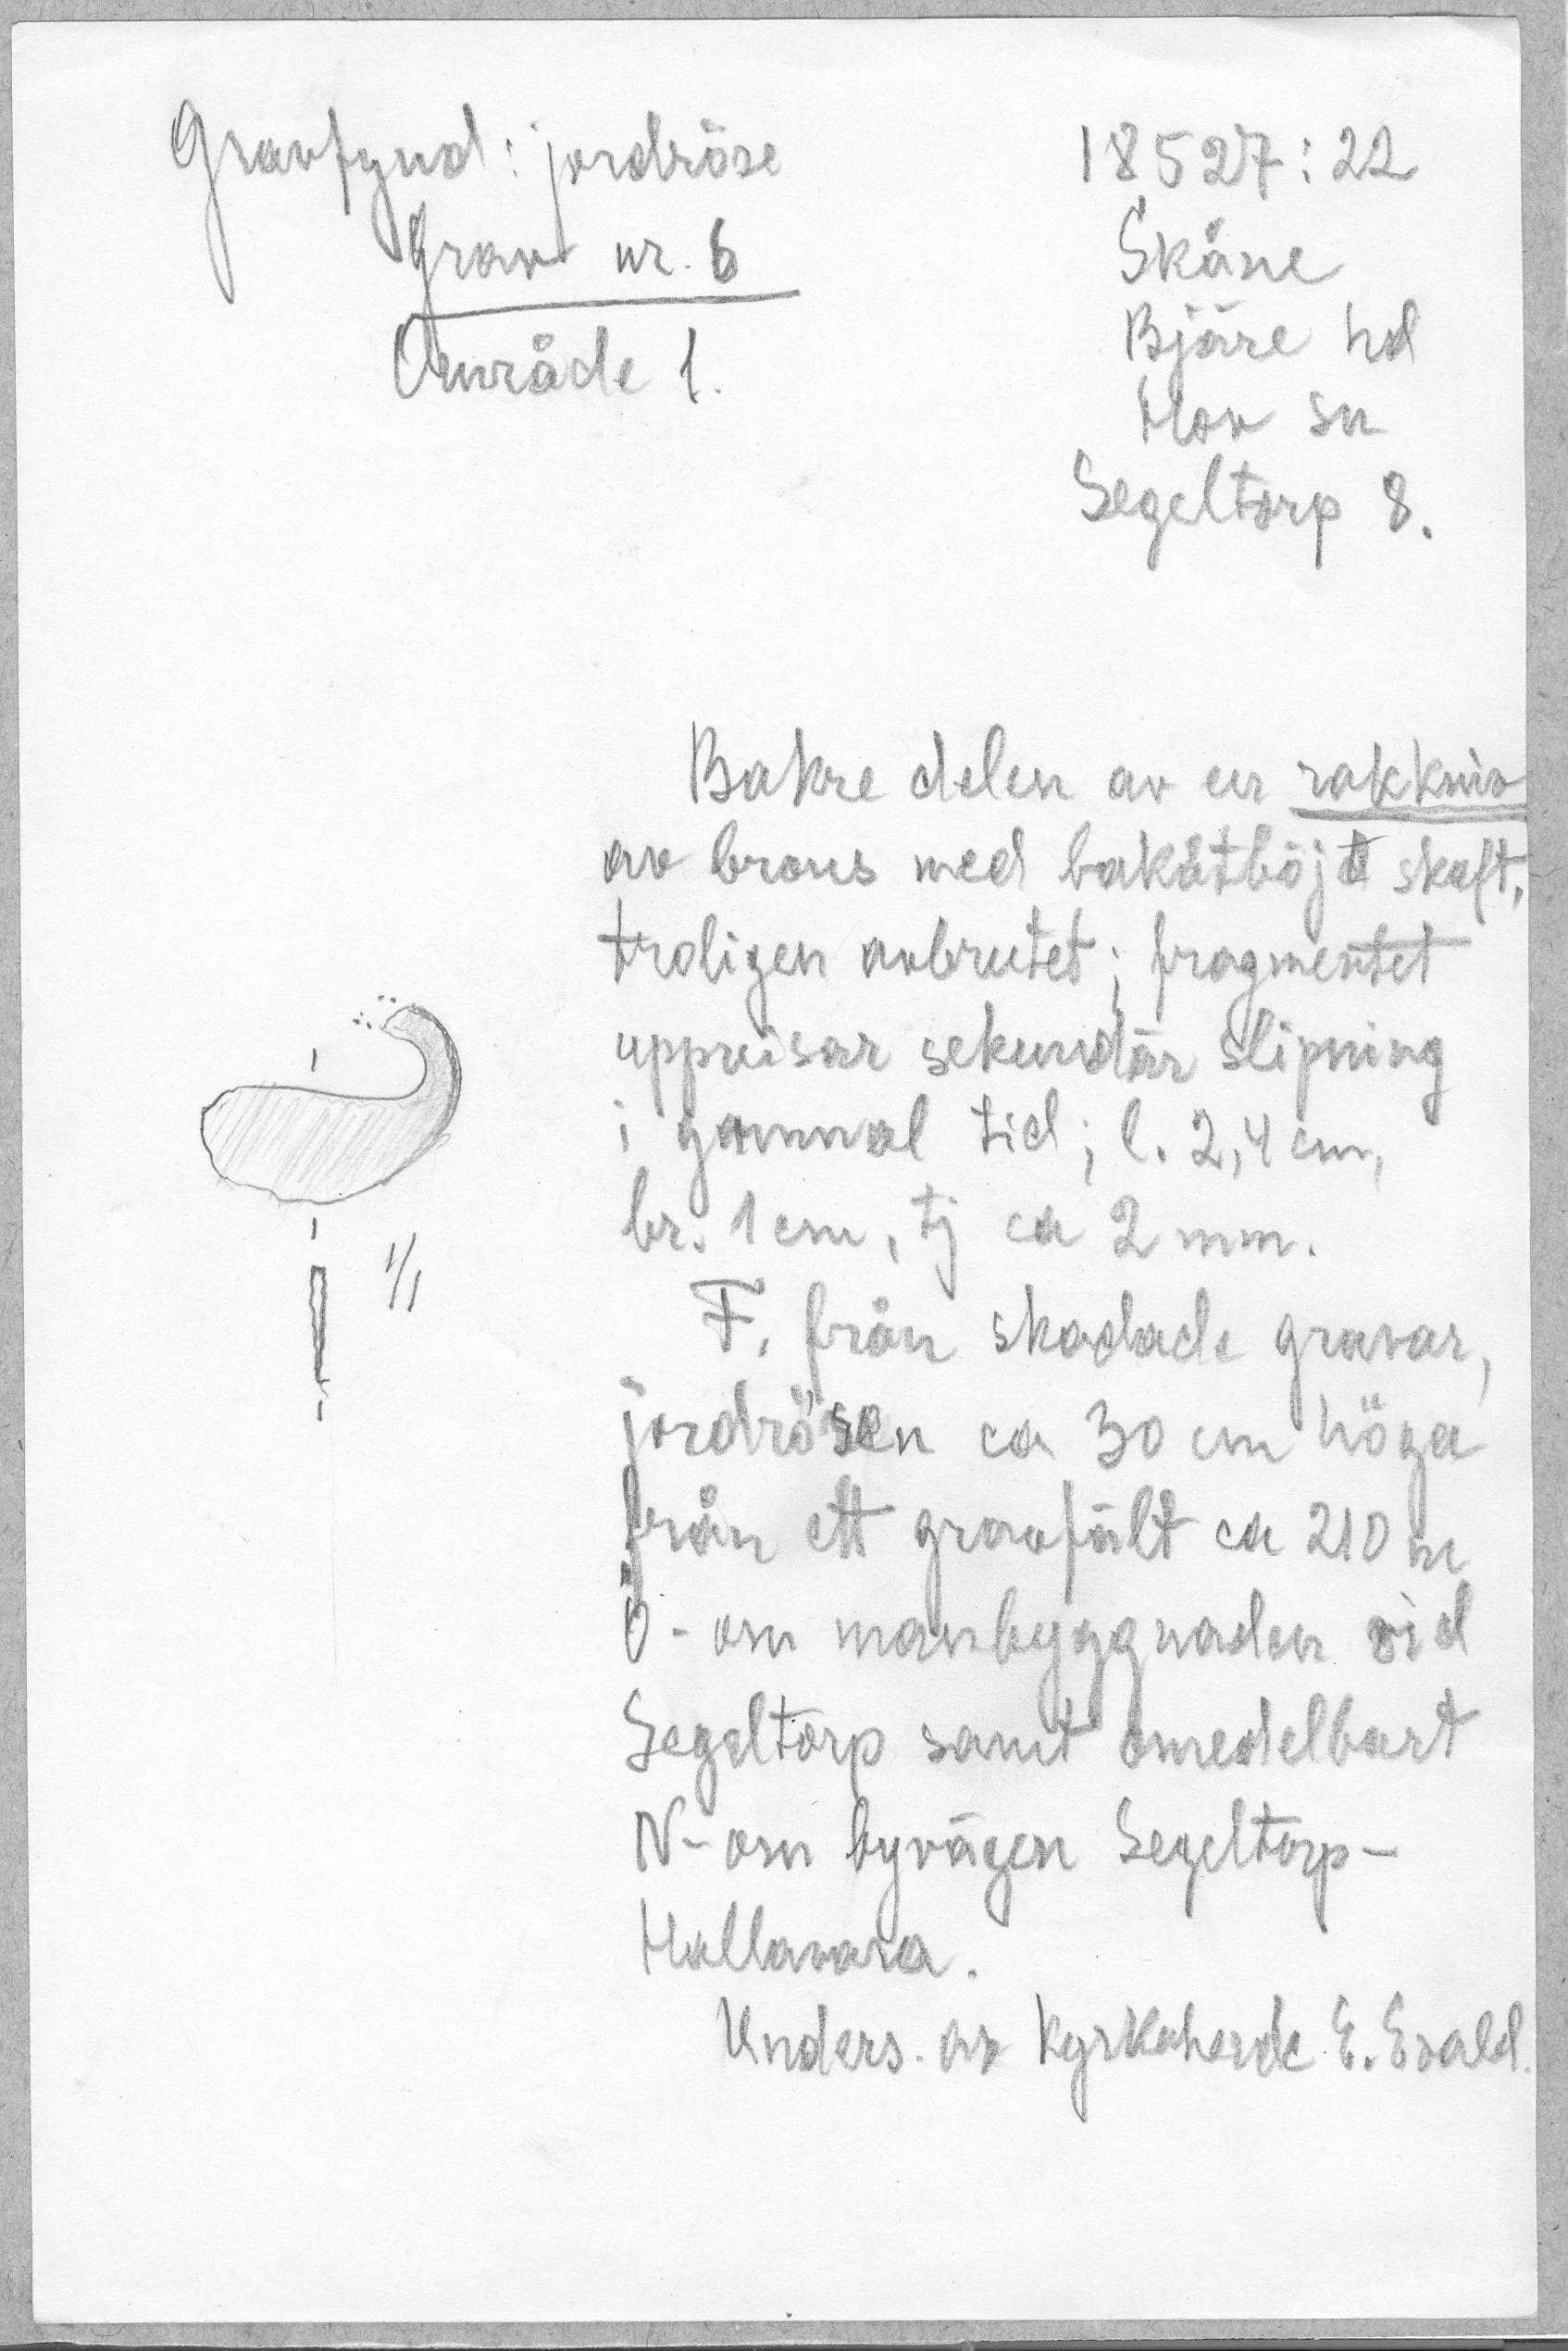 Gravfynd: jordröse
Grav nr. 6
Område 1.
18527:22
Skåne
Bjäre hd
Hov sn
Segeltorp 8.
Bakre delen av en rakkniv
av brons med bakåtböjt skaft,
troligen avbrutet; fragmentet
uppvisar sekundär slipning
i gammal tid; l. 2,4 cm,
br. 1 cm, tj ca 2 mm.
1/1
F. från skadade gravar,
jordrösen ca 30 cm höga
från ett gravfält ca 210 m
Ö-om manbyggnaden vid
Segeltorp samt omedelbart
N-om byvägen Segeltorp-
Hallavara.
Unders. av kyrkoherde E. Evald.